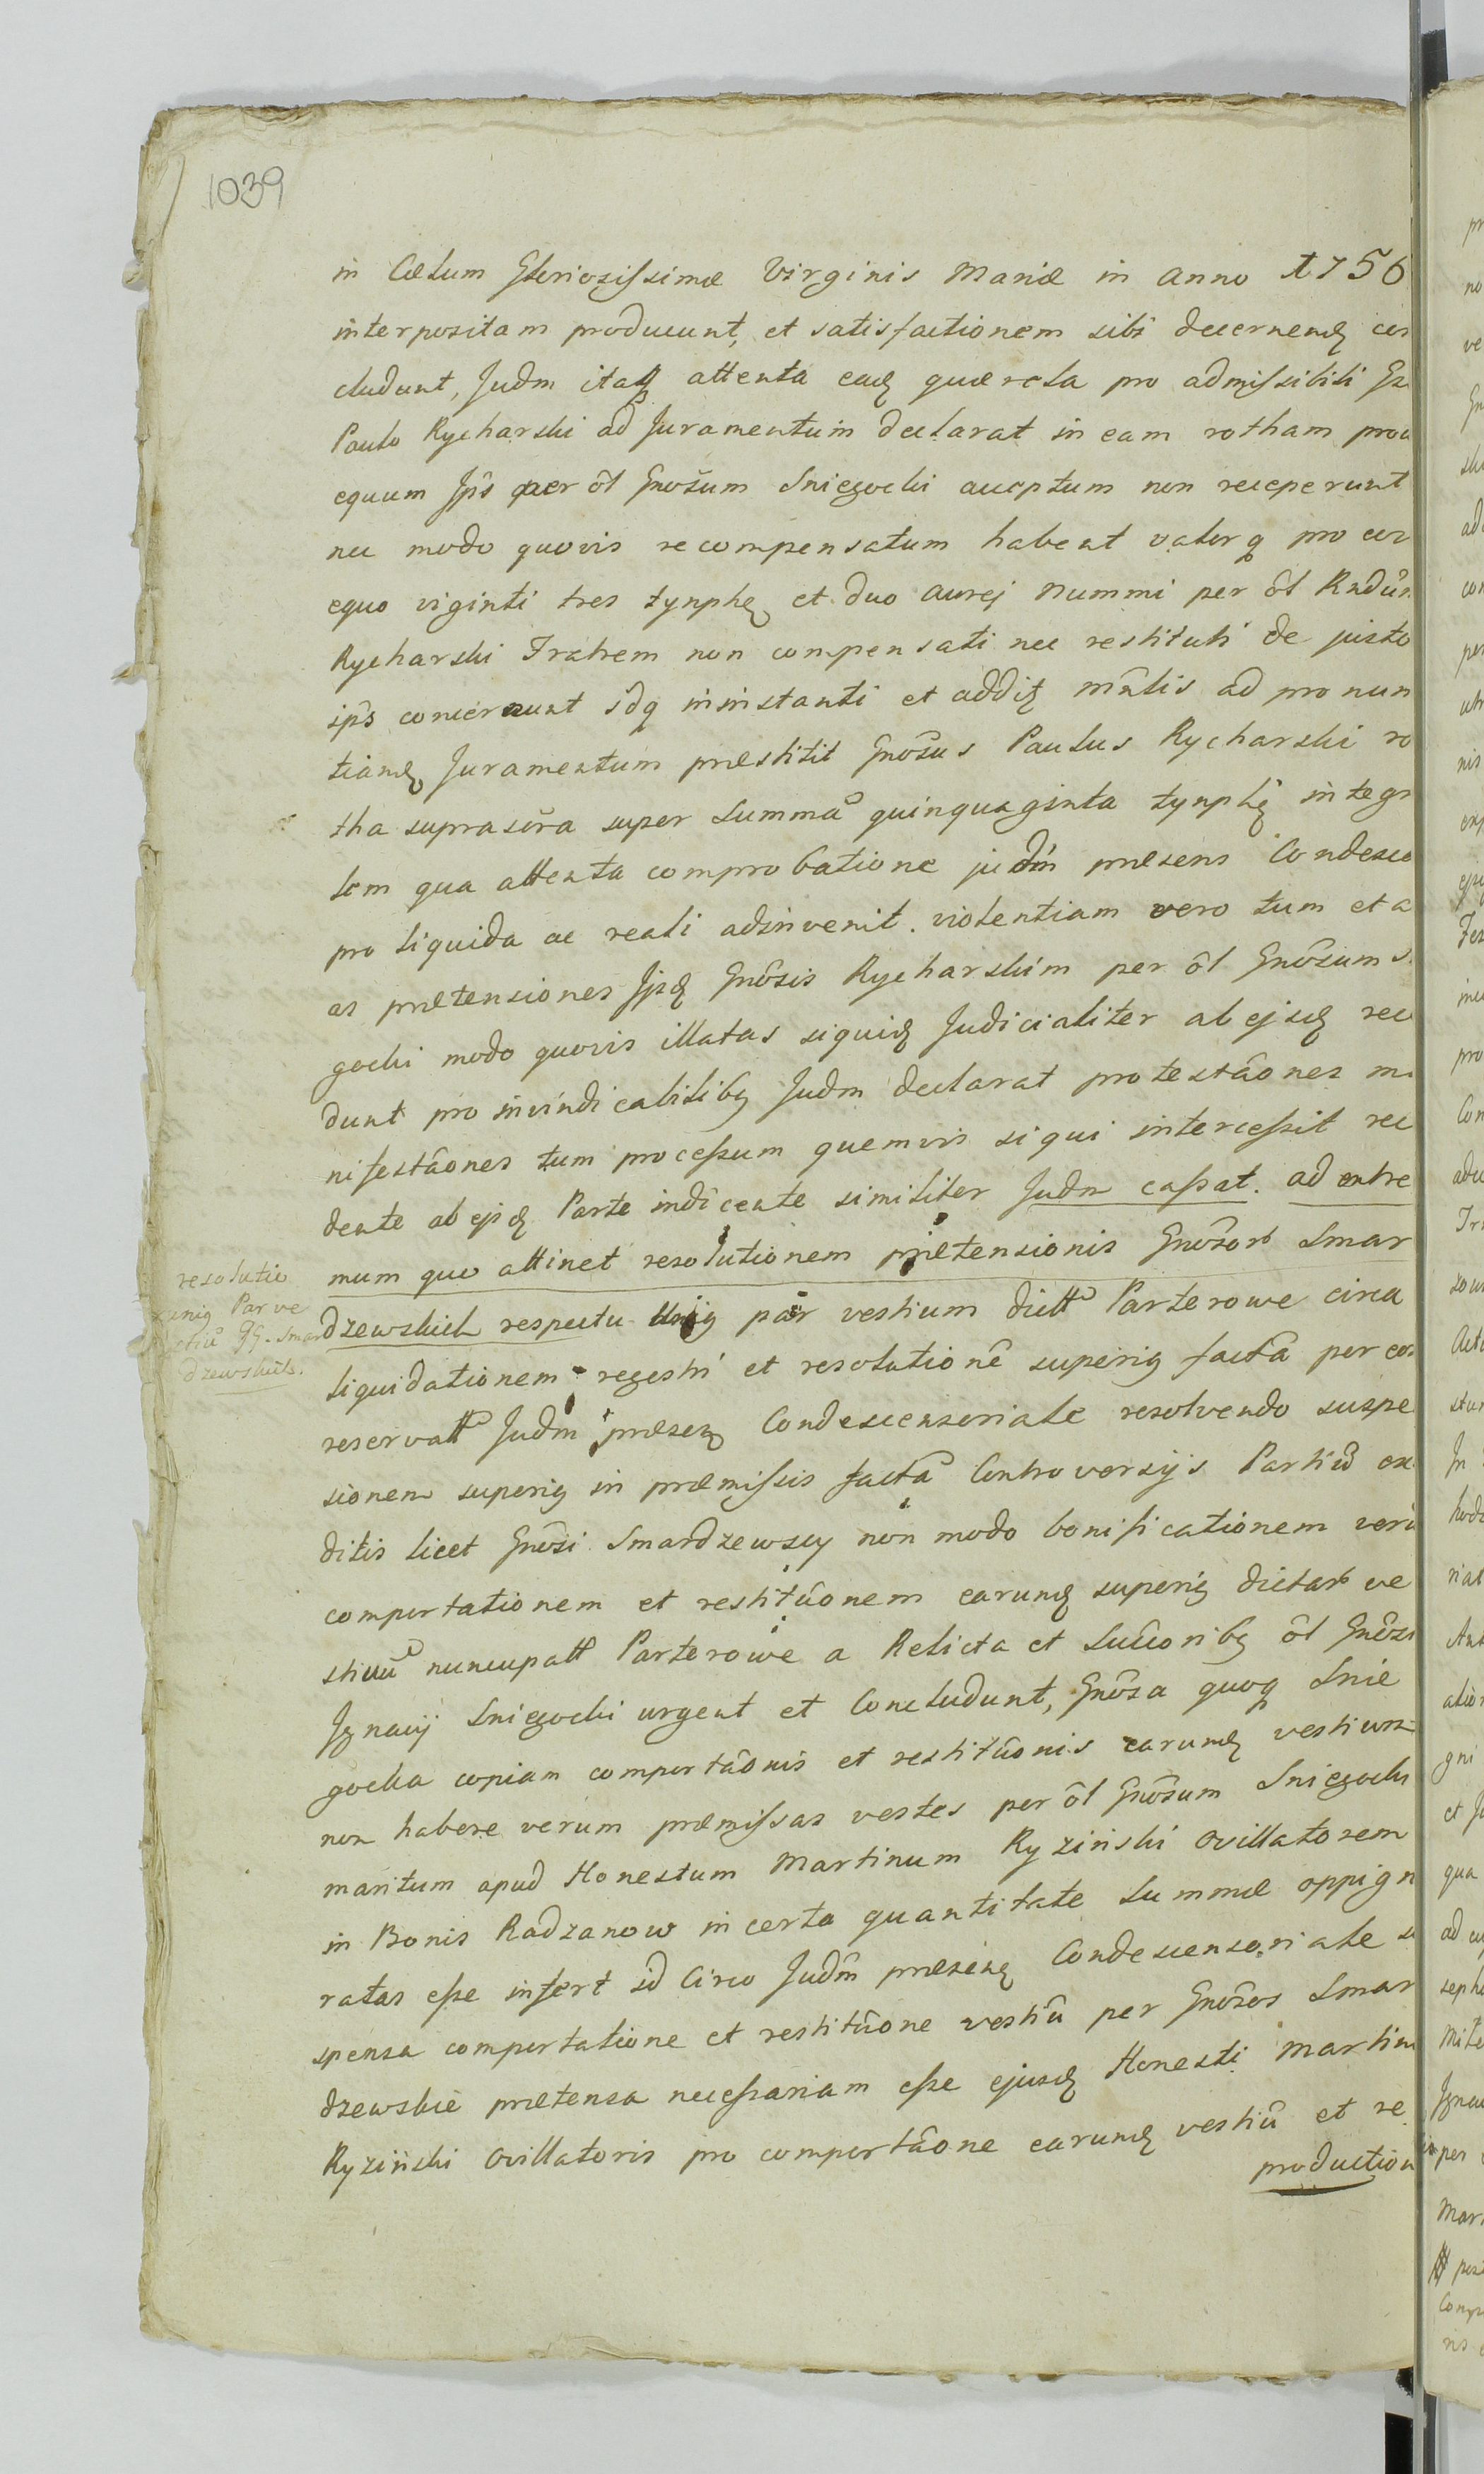 1039
in Cœlum Gloriosissimæ Virginis Mariæ in Anno 1756
interpositam producunt, et satisfactionem sibi decernend con
cludunt, Judm itaq attenta ead quærela pro admissibili Gz
Paulo Rycharski ad Juramentum declarat in eam rotham prou
equum Jps per ôl Gnosum Sniegocki acceptum non receperunt
nec modo quovis recompensatum habent valorq pro eor
equo viginti tres tynphe et duo aurej Nummi per ôl Rndum
Rycharski Fratrem non compensati nec restituti de justo
ips concernunt idq in instanti et addit mntis ad pronun
tiand Juramentum præstitit Gnosus Paulus Rycharski ro
tha suprascra super Summa quinquaginta tynphe integr
lem qua attenta comprobatione judm præsens Condesce
pro liquida ac reali adinvenit. violentiam vero tum et a
as prætensiones Jpsq Gnosis Rycharskim per ôl Gnosum S
gocki modo quovis illatas siquid Judicialiter ab ejsd rece
dunt pro invindicabilibq Judm declarat protestâones ma
nifestâones tum processum quemvis si qui intercessit rec
dente ab ejsd Parte indicente similiter Judm cassat. ad extre
mum quo attinet resolutionem prætensionis Gnosor Smar
dzewskich respectu unig par vestium dictt Parterowe circa
liquidationem regestri et resolutionê superig factâ per eos
reservatt Judm præsen Condescensoriale resolvendo suspe
sionem superig in præmissis factâ Controversijs Partiû ex
ditis licet Gnosi Smardzewscy non modo bonificationem verû
comportationem et restituonem earund superig dictar ve
stiuû nuncupatt Parterowe a Relicta et Sucoribq ôl Gnosi
Ignacij Sniegocki urgent et Concludunt, Gnosa quoq Snie
gocka copiam comportâonis et restitûonis earund vestium
non habere verum præmissas vestes per ôl Gnosum Sniegocki
maritum apud Honestum Martinum Ryziński Ovillatorem
in Bonis Radzanow in certa quantitate Summæ oppign
ratas esse infert id Circo Judm præsens Condescensoriale su
spensa comportatione et restitûone vestiû per Gnosos Smar
dzewskie prætensa necessariam esse ejusd Honesti Martini
Ryziński Ovillatoris pro comportâone earund vestiû et re
production
resolutio
unig Par ve
stiû GG. Smar
dzewskich.